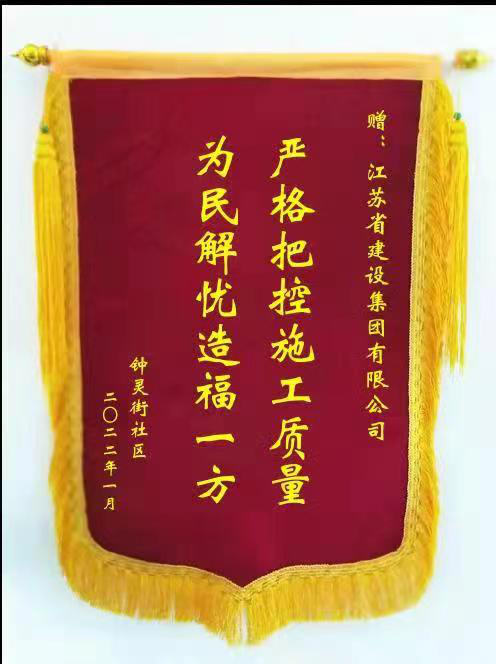 赠：江苏省建设集团有限公司
严格把控施工质量
为民解忧造福一方
钟灵街社区
二〇二二年一月